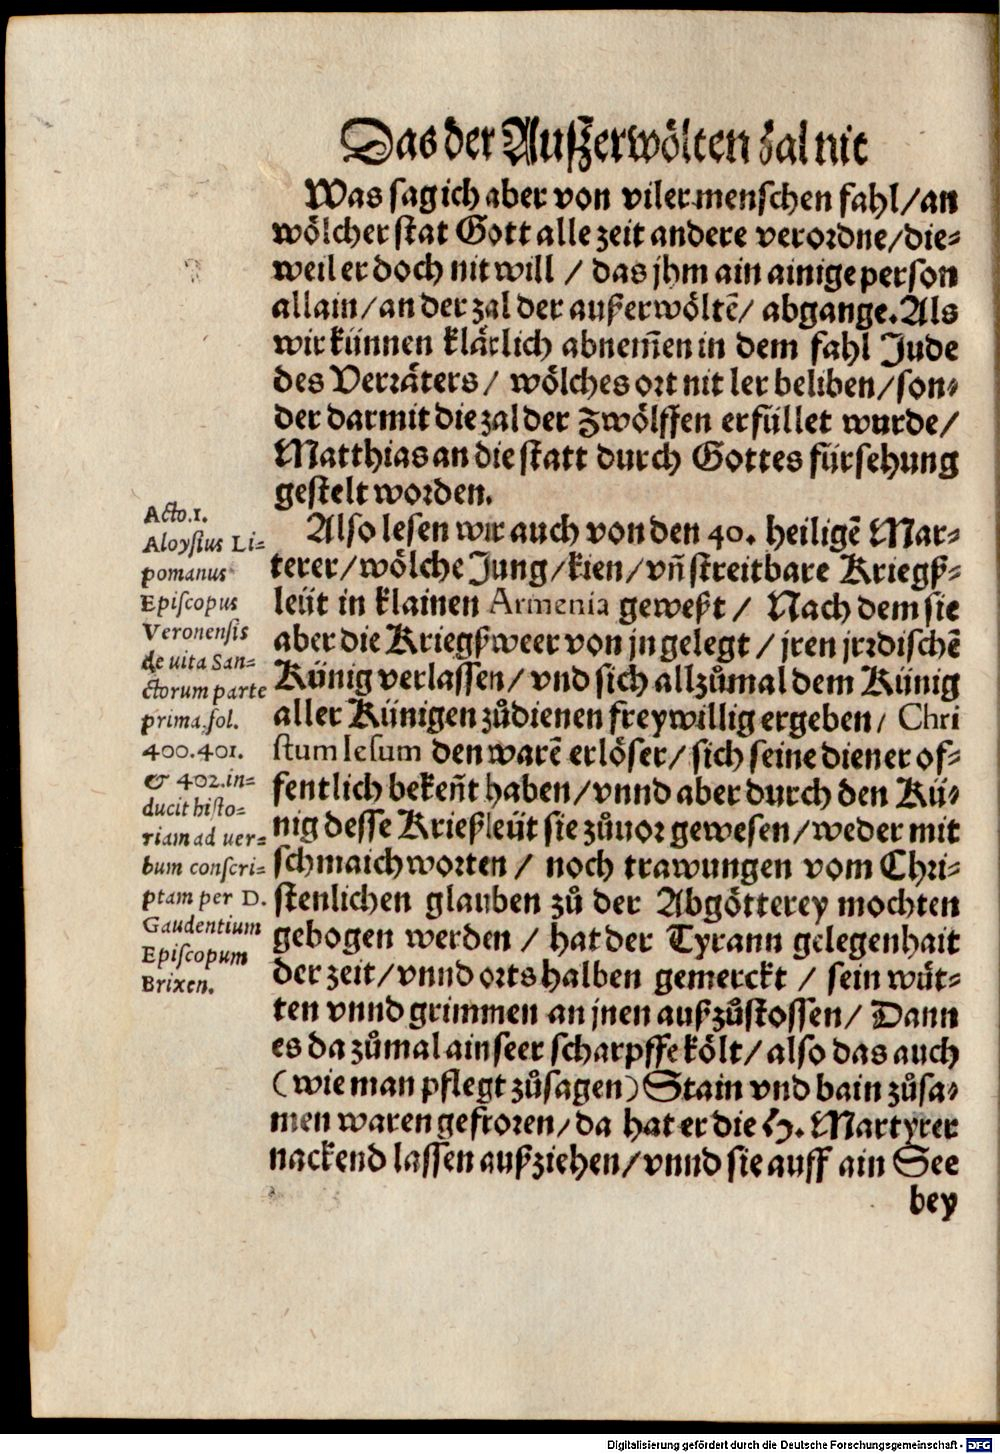 Das der Außerwölten zal nit
Was sag ich aber von viler menschen fahl/ an
wölcher stat Gott alle zeit andere verordne/ die-
weil er doch nit will / das jhm ain ainige person
allain/ an der zal der außerwöltē/ abgange. Als
wir künnen klärlich abnem̄en in dem fahl Jude
des Verräters/ wölches ort nit ler beliben/ son-
der darmit die zal der zwölffen erfüllet wurde/
Matthias an die statt durch Gottes fürsehung
gestelt worden.
Also lesen wir auch von den 40. heiligē Mar-
terer/ wölche Jung/ kien/ vn̄ streitbare Kriegß-
leüt in klainen Armenia geweßt / Nach dem sie
aber die Kriegßweer von jn gelegt / jren jrrdischē
Künig verlassen/ vnd sich allzůmal dem Künig
aller Künigen zůdienen freywillig ergeben/ Chri
stum Iesum den warē erlöser/ sich seine diener of-
fentlich beken̄t haben/ vnnd aber durch den Kü-
nig desse Krießleüt sie zůuor gewesen/ weder mit
schmaichworten / noch trawungen vom Chri-
stenlichen glauben zů der Abgötterey mochten
gebogen werden / hat der Tyrann gelegenhait
der zeit/ vnnd orts halben gemerckt / sein wüt-
ten vnnd grimmen an jnen außzůstossen/ Dann
es dazůmal ain seer scharpffe költ/ also das auch
(wie man pflegt zůsagen) Stain vnd bain zůsa-
men waren gefroren/ da hat er die H. Martyrer
nackend lassen außziehen/ vnnd sie auff ain See
bey
Acto.1.
Aloysius Li-
pomanus
Episcopus
Veronensis
de uita San-
ctorum parte
prima, fol.
400.401.
& 402.in-
ducit histo-
riam ad uer-
bum conscri-
ptam per D.
Gaudentium
Episcopum
Brixen.
Digitalisierung gefördert durch die Deutsche Forschungsgemeinschaft - DFG